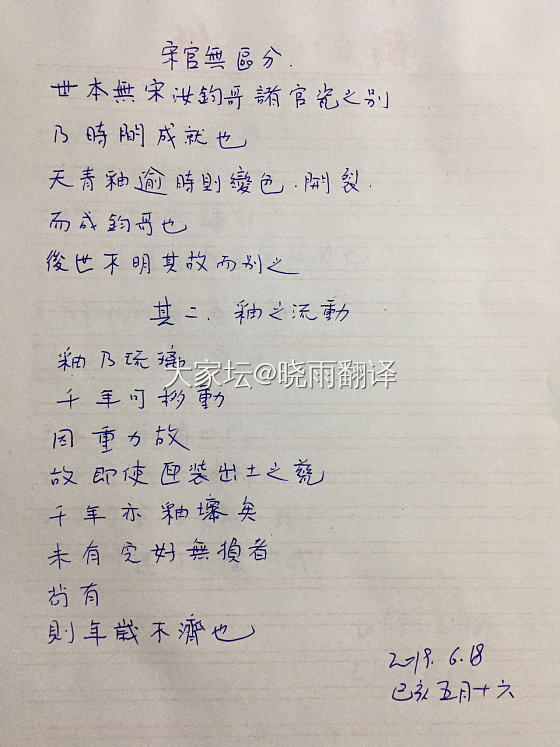 宋官無區分.
世本無宋汝鈞哥諸官瓷之别
乃時間成就也
天青釉逾時則變色.開裂.
而成鈞哥也
後世不明其故而别之
其二.釉之流動
釉乃琉璃
大家坛@晓雨翻译
千年可移動
因重力故
故即使匣装出土之甕
千年亦釉壞矣
未有完好無損者
尚有
則年歲不濟也
2019.6.18
己亥五月十六